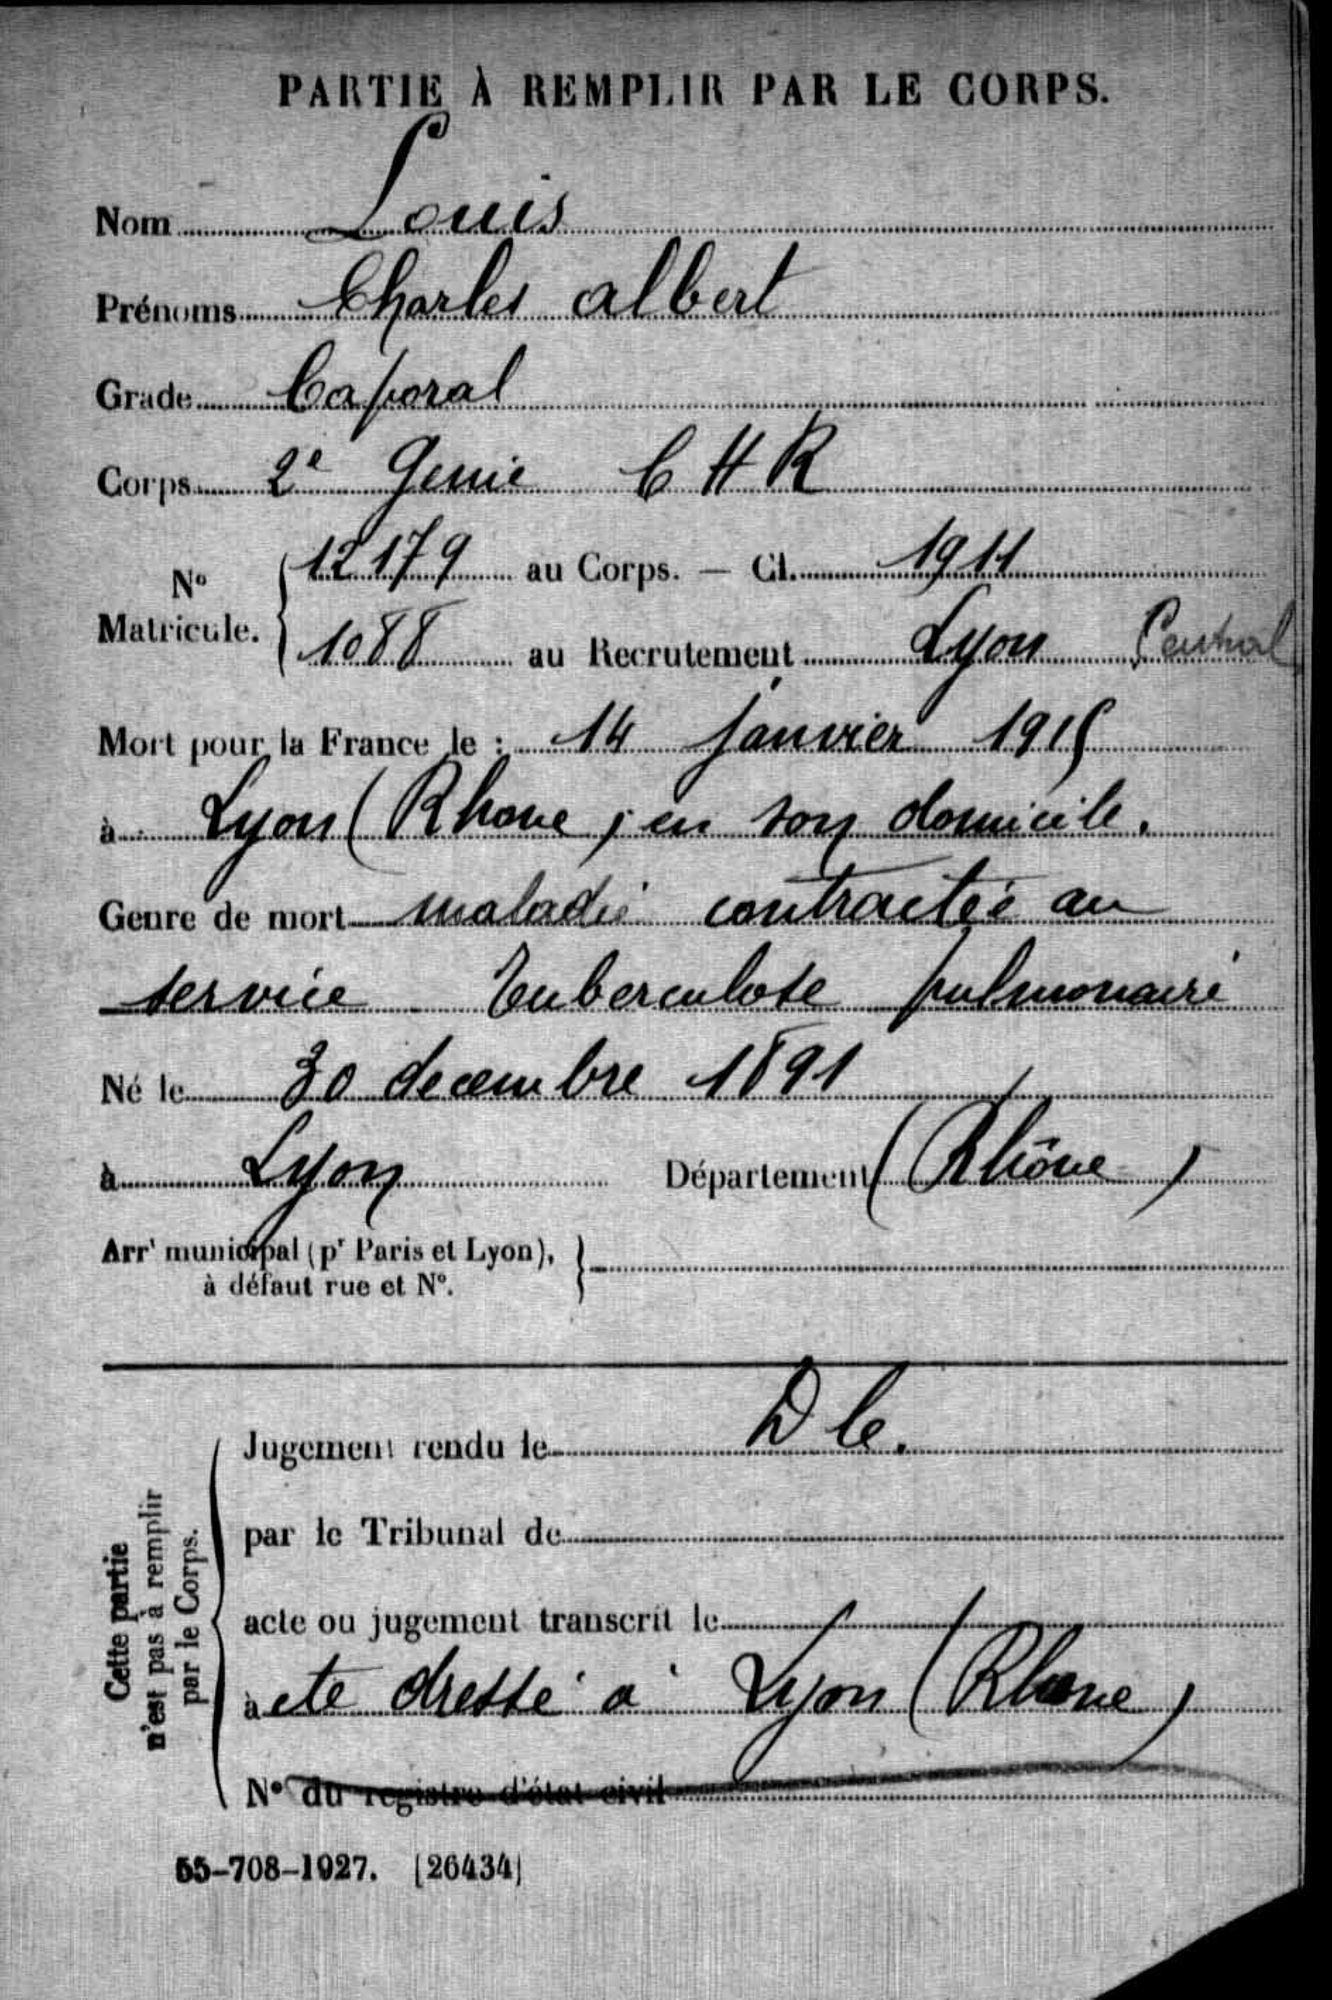 PARTIE À REMPLIR PAR LE CORPS.
Nom Louis
Prénoms Charles Albert
Grade Caporal
Corps 2e Génie C H R
No Matricule. 12179 au Corps. — Cl. 1911
1088 au Recrutement Lyon Central
Mort pour la France le : 14 janvier 1915
à Lyon (Rhone) en son domicile.
Genre de mort maladie contractée au
service Tuberculose pulmonaire
Né le 30 decembre 1891
à Lyon Département (Rhône)
Arrt municipal (pr Paris et Lyon),
à défaut rue et No.
Cette partie
n'est pas à remplir
par le Corps.
Jugement rendu le D le.
par le Tribunal de
acte ou jugement transcrit le
acte dressé à Lyon (Rhone)
No du registre d'état civil
55-708-1927. [26434]